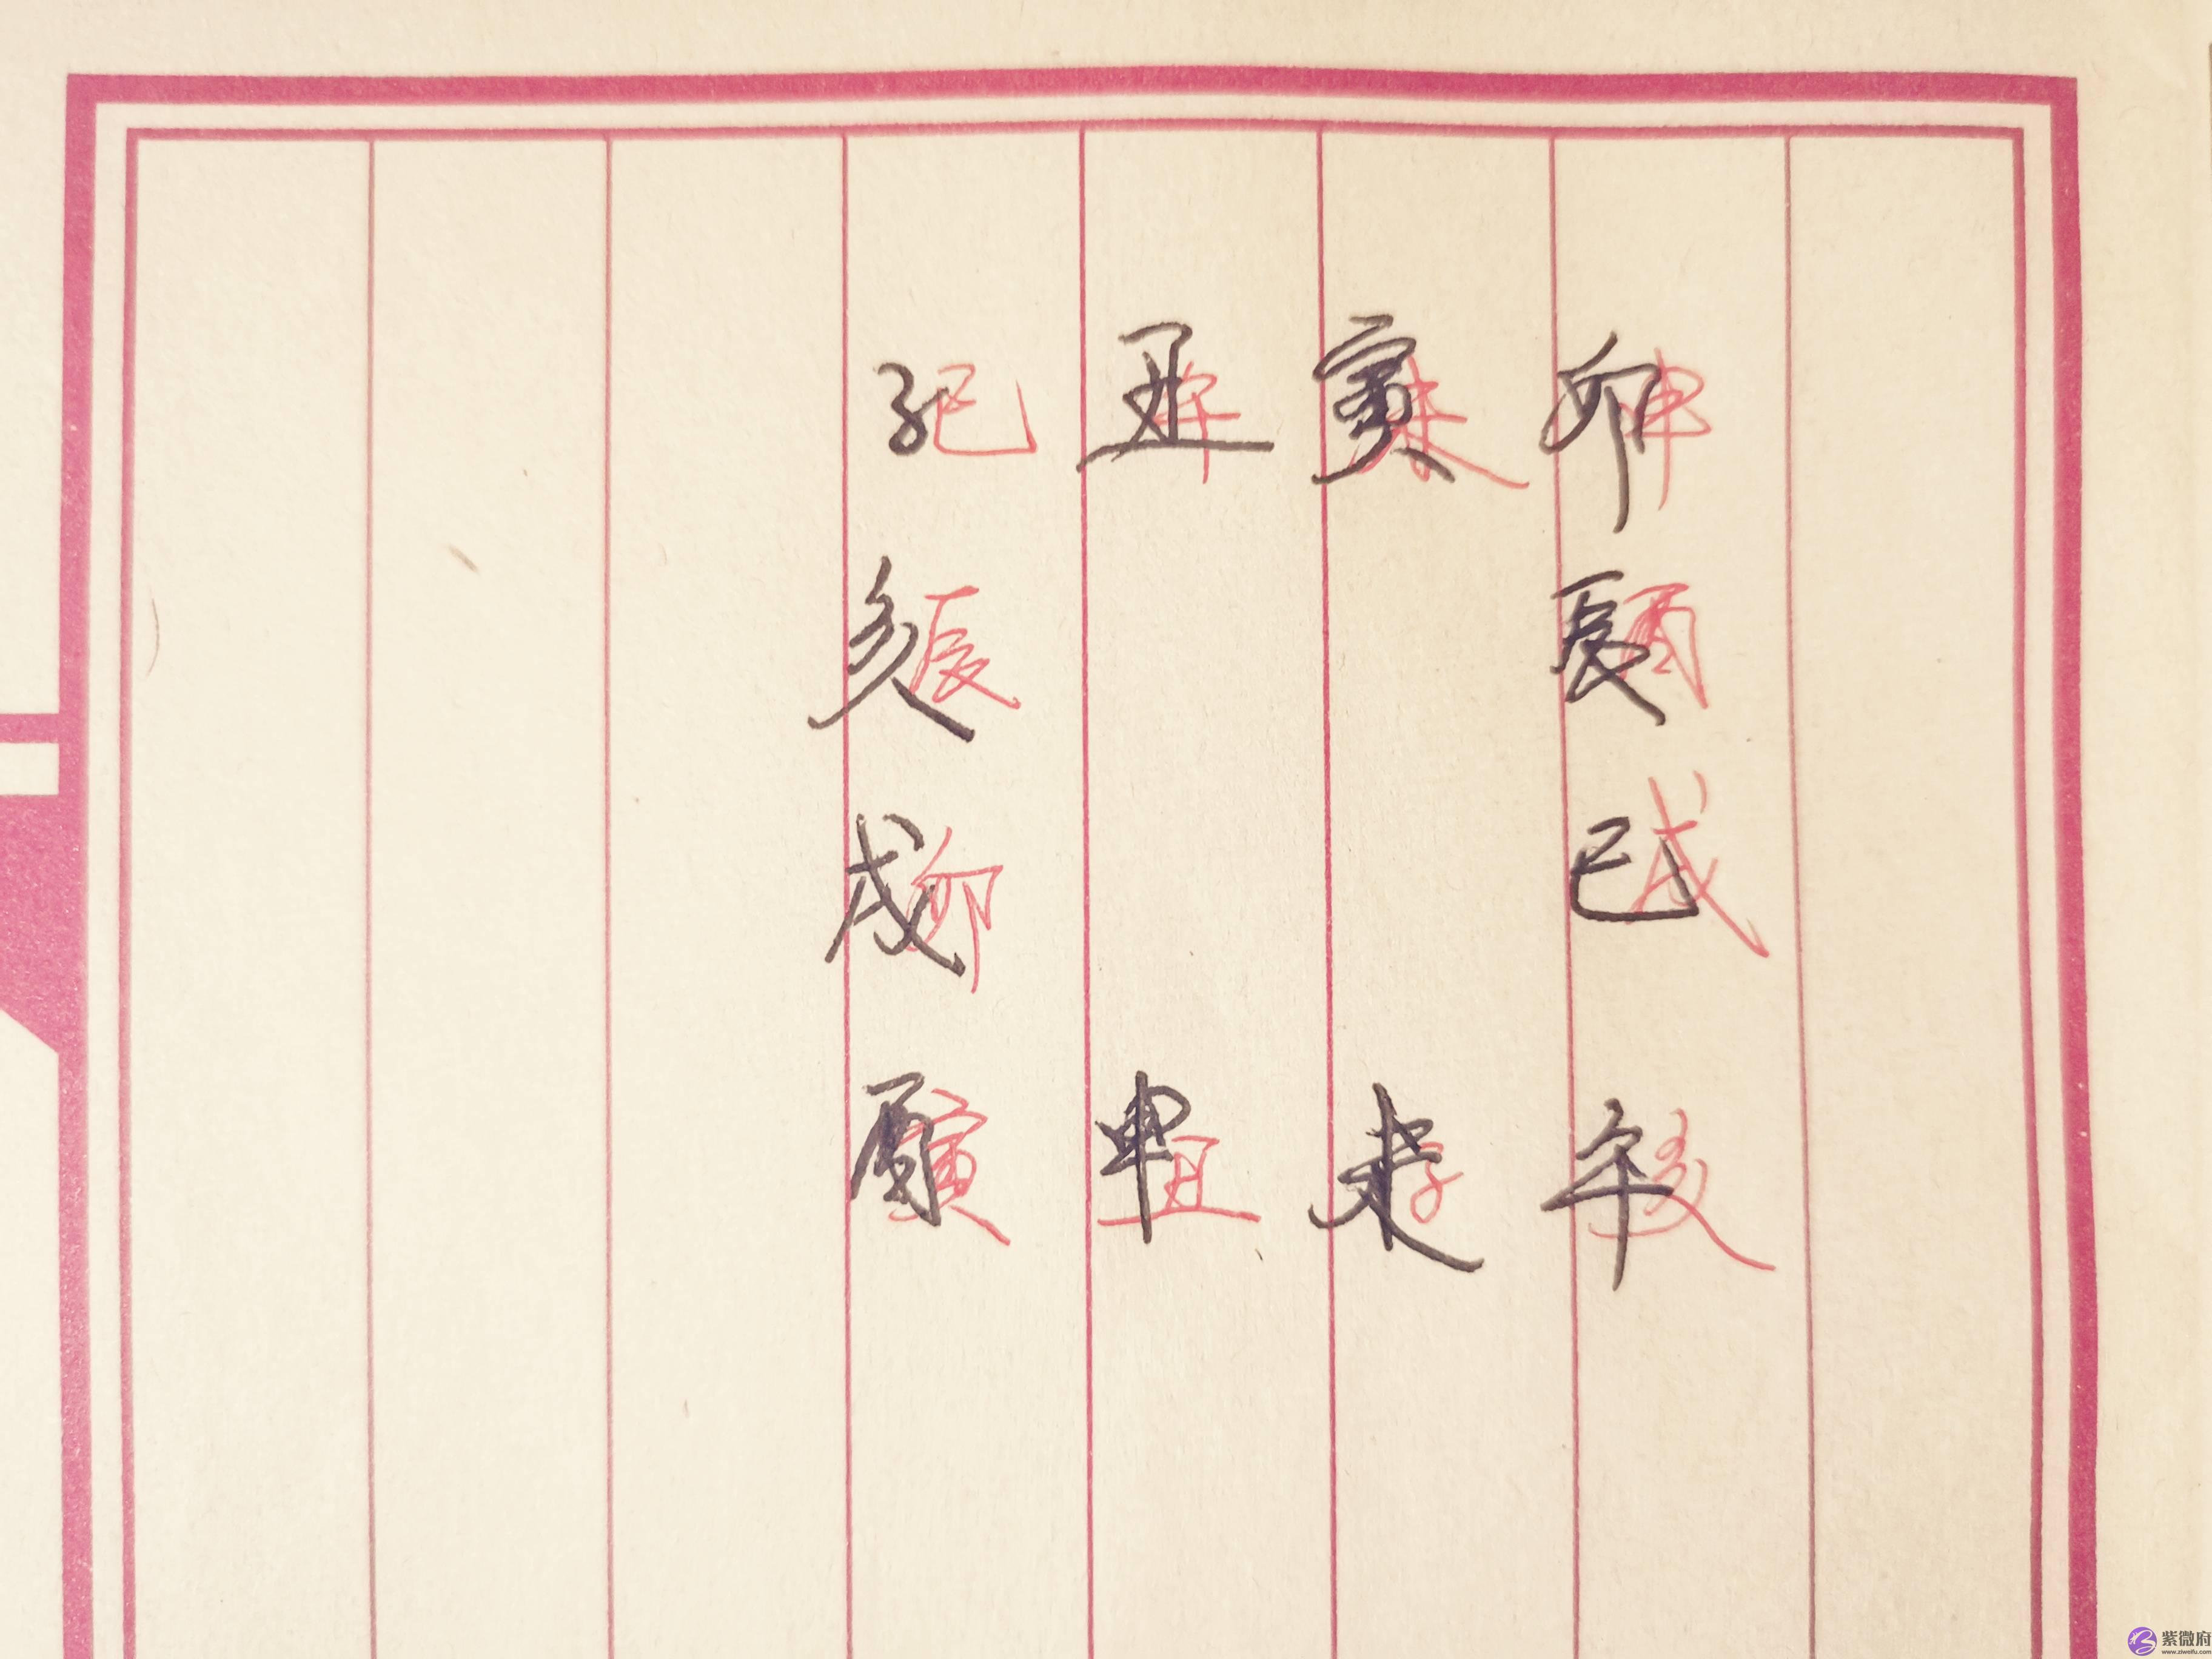 子巳 丑午 寅未 卯申
亥辰 辰酉
戌卯 巳戌
酉寅 申丑 未子 午亥
紫微府
www.ziweifu.com